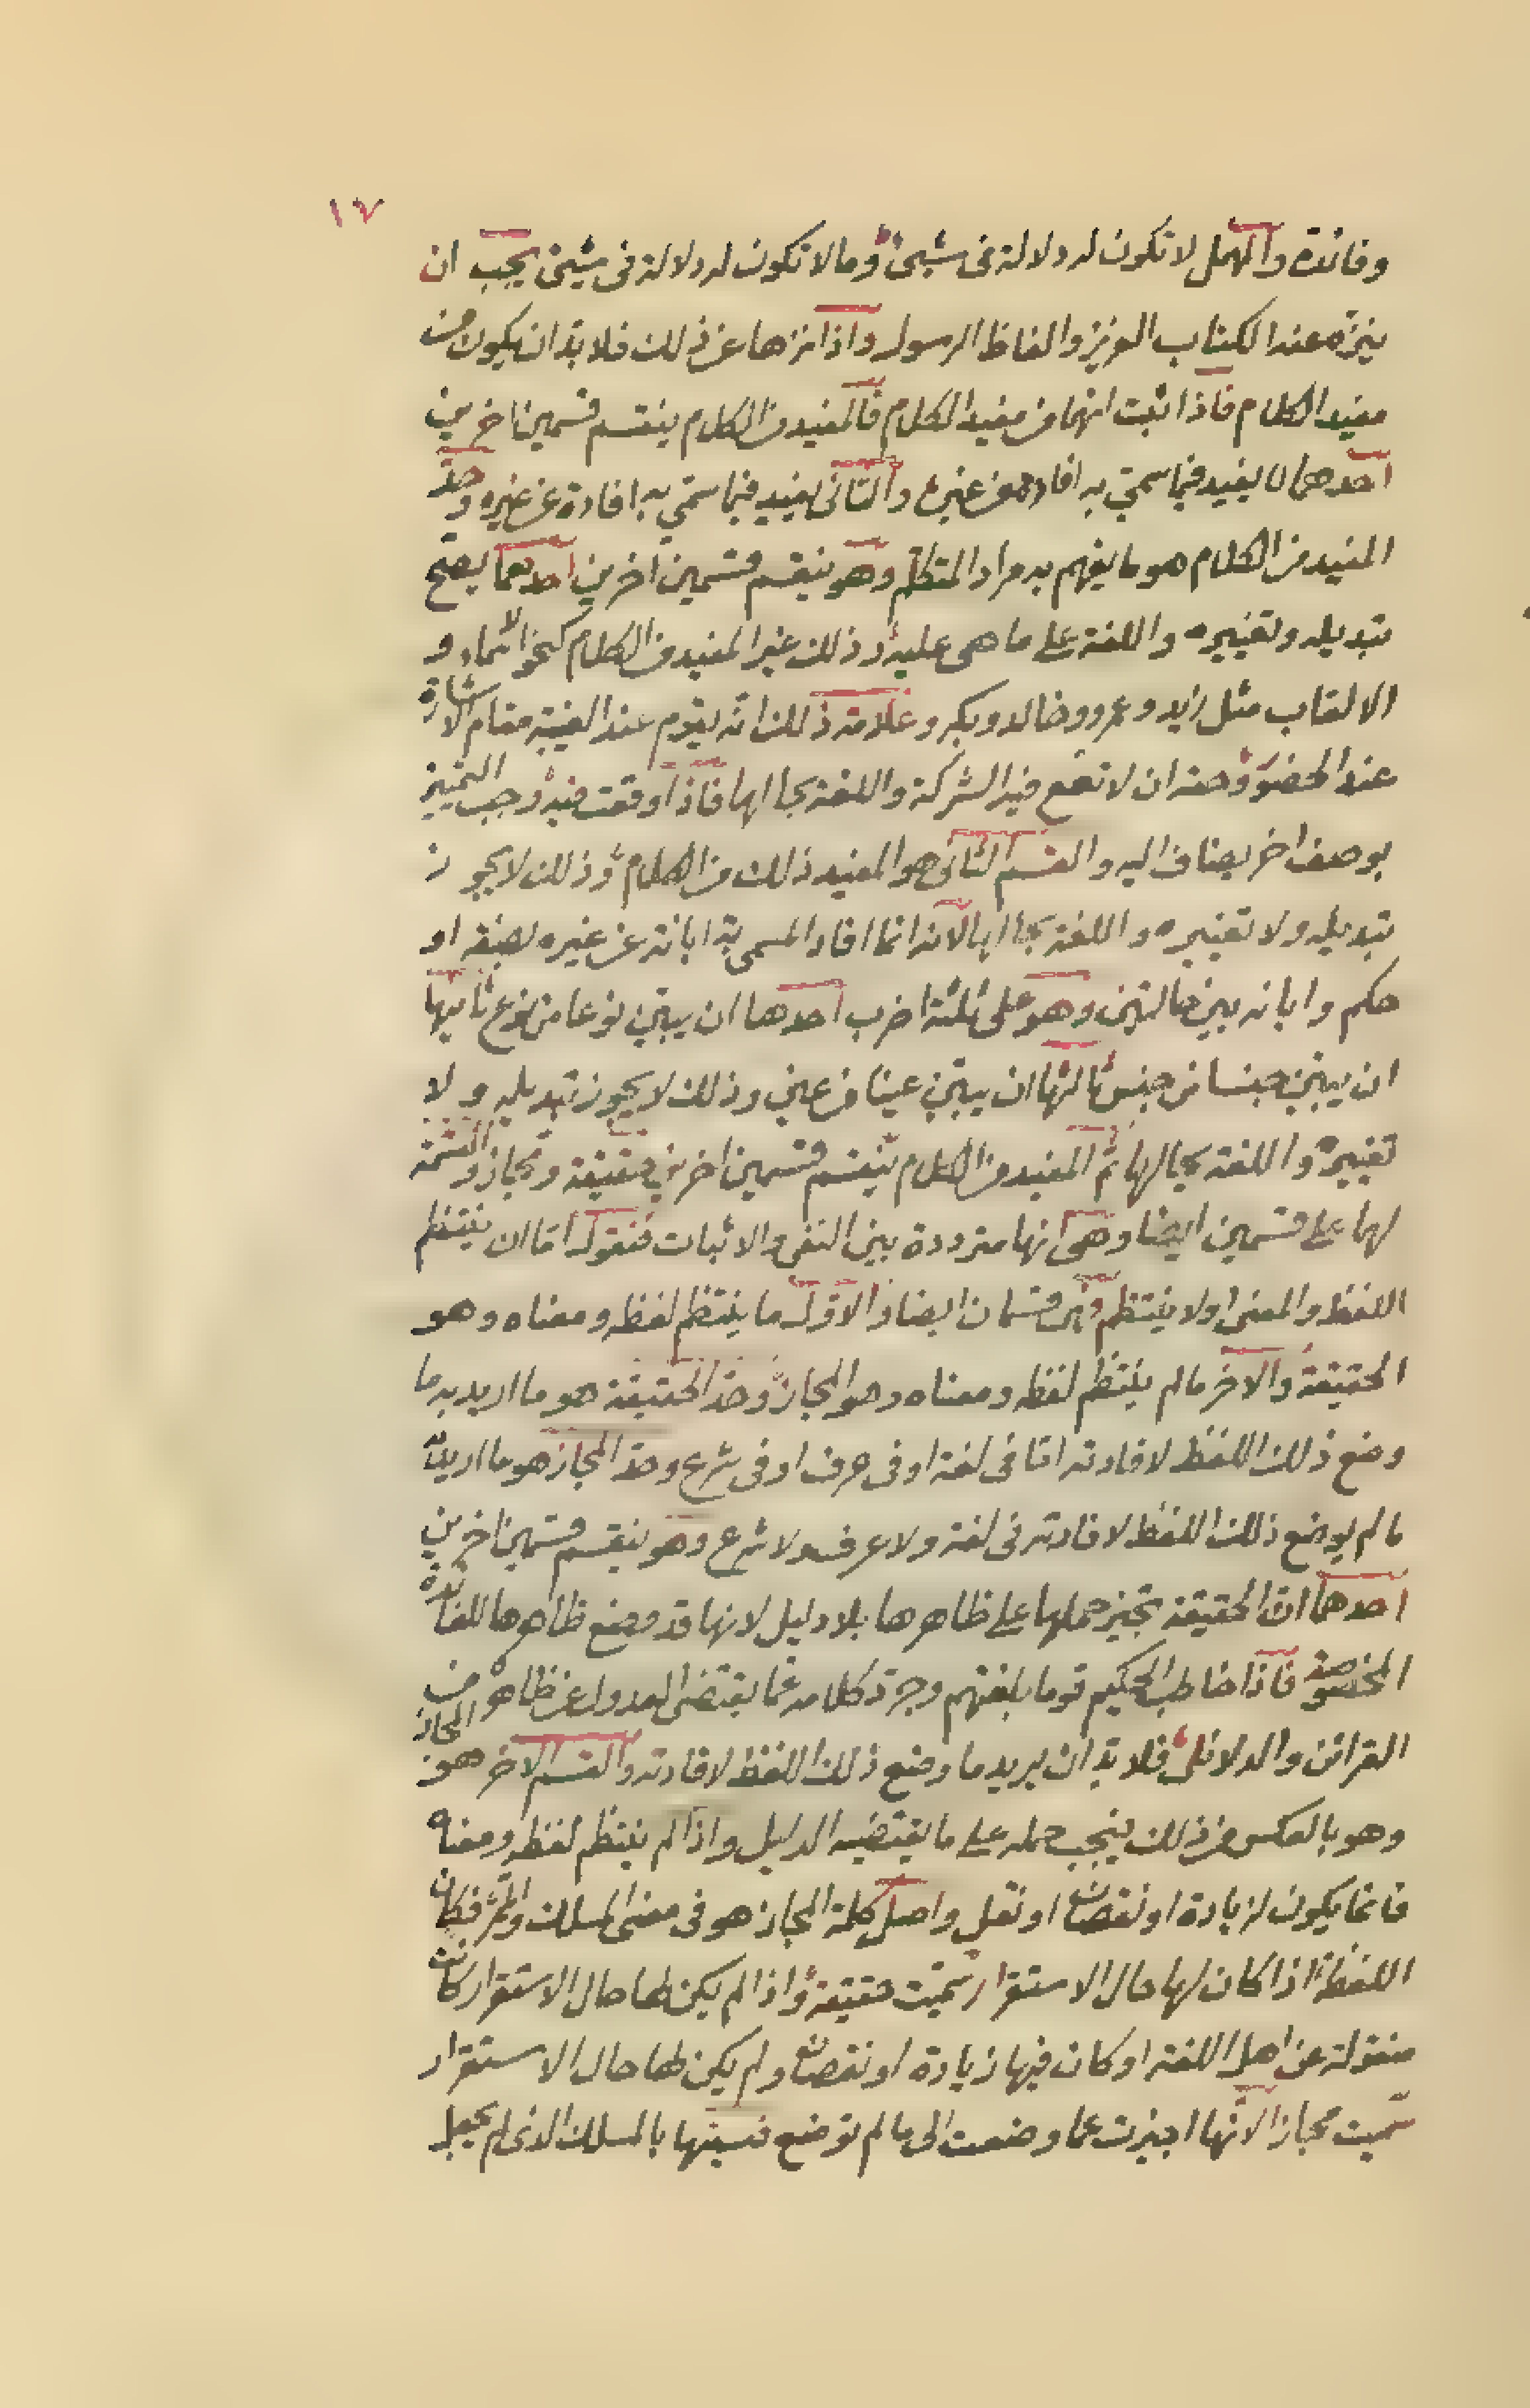 ١٧
وفائدة والمهمل لا تكون له دلالة فى شيئ وما لا تكون له دلالة فى شيئ يجب ان
ينزه عنه الكتاب العزيز والفاظ الرسول واذا نزها عن ذلك فلا بد ان يكون من
مفيد الكلام فاذا ثبت انهما من مفيد الكلام فالمفيد من الكلام ينقسم قسمين اخرين
احدهما لا يفيد فيما سمي به افادة من غيره والثانى يفيد فيما سمي به افادة عن غيره وحد
المفيد من الكلام هو ما يفهم به مراد المتكلم وهو ينقسم قسمين اخرين احدهما يصح
تبديله وتغييره واللغة على ما هى عليه وذلك غير المفيد من الكلام كنحو الاسماء و
الالقاب مثل زيد وعمرو وخالد وبكر وعلامة ذلك انه يقوم عند الغيبة مقام الاشارة
عند الحضور وحقه ان لا تقع فيه الشركة واللغة بحالها فاذا وقعت فيه وجب التمييز
بوصف اخر يضاف اليه والقسم الثانى هو المفيد ذلك من الكلام وذلك لا يجوز
تبديله ولا تغييره واللغة بحالها لانه انما افاد المسمى به ابانة عن غيره بصفة او
حكم وابانه بين حالتين وهو على ثلثة اضرب احدها ان يبين نوعا من نوع ثانيها
ان يبين جنسا من جنس ثالثها ان يبين عينا من عين وذلك لا يجوز تبديله ولا
تغييره واللغة بحالها ثم المفيد من الكلام ينقسم قسمين اخرين حقيقة ومجاز والقسمة
لها على قسمين ايضا وهى انها مترددة بين النفى والاثبات فنقول اما ان ينتظم
اللفظ والمعنى او لا ينتظم وهى قسمان ايضا والاول ما ينتظم لفظه ومعناه وهو
الحقيقة والاخر ما لم ينتظم لفظه ومعناه وهو المجاز وحد الحقيقة هو ما اريد به ما
وضع ذلك اللفظ لافادته اما فى لغة او فى عرف او فى شرع وحد المجاز هو ما اريد به
ما لم يوضع ذلك اللفظ لافادته فى لغة ولا عرف ولا شرع وهو ينقسم قسمين اخرين
احدهما ان الحقيقة تجيز حملها على ظاهرها بلا دليل لانها قد وضع ظاهرها للفائدة
المخصوصة فاذا خاطب الحكيم قوما بلغتهم وجرد كلامه عما يقتضى العدول عن ظاهره من
القرائن والدلائل فلا بد ان يريد ما وضع ذلك اللفظ لافادته والقسم الاخر هو المجاز
وهو بالعكس من ذلك يجب حمله على ما يقتضيه الدليل واذا لم ينتظم لفظه ومعناه
فانما يكون لزيادة او نقصان او نقل واصل كلمة المجاز هو فى معنى المسلك والممر فكان
اللفظة اذا كان لها حال الاستقرار سميت حقيقة واذا لم يكن لها حال الاستقرار كانت
منقولة عن اهل اللغة او كان فيها زيادة او نقصان ولم يكن لها حال الاستقرار
سميت مجازا لانها اجيزت عما وضعت الى ما لم توضع فسميتها بالمسلك الذى لم يجعل